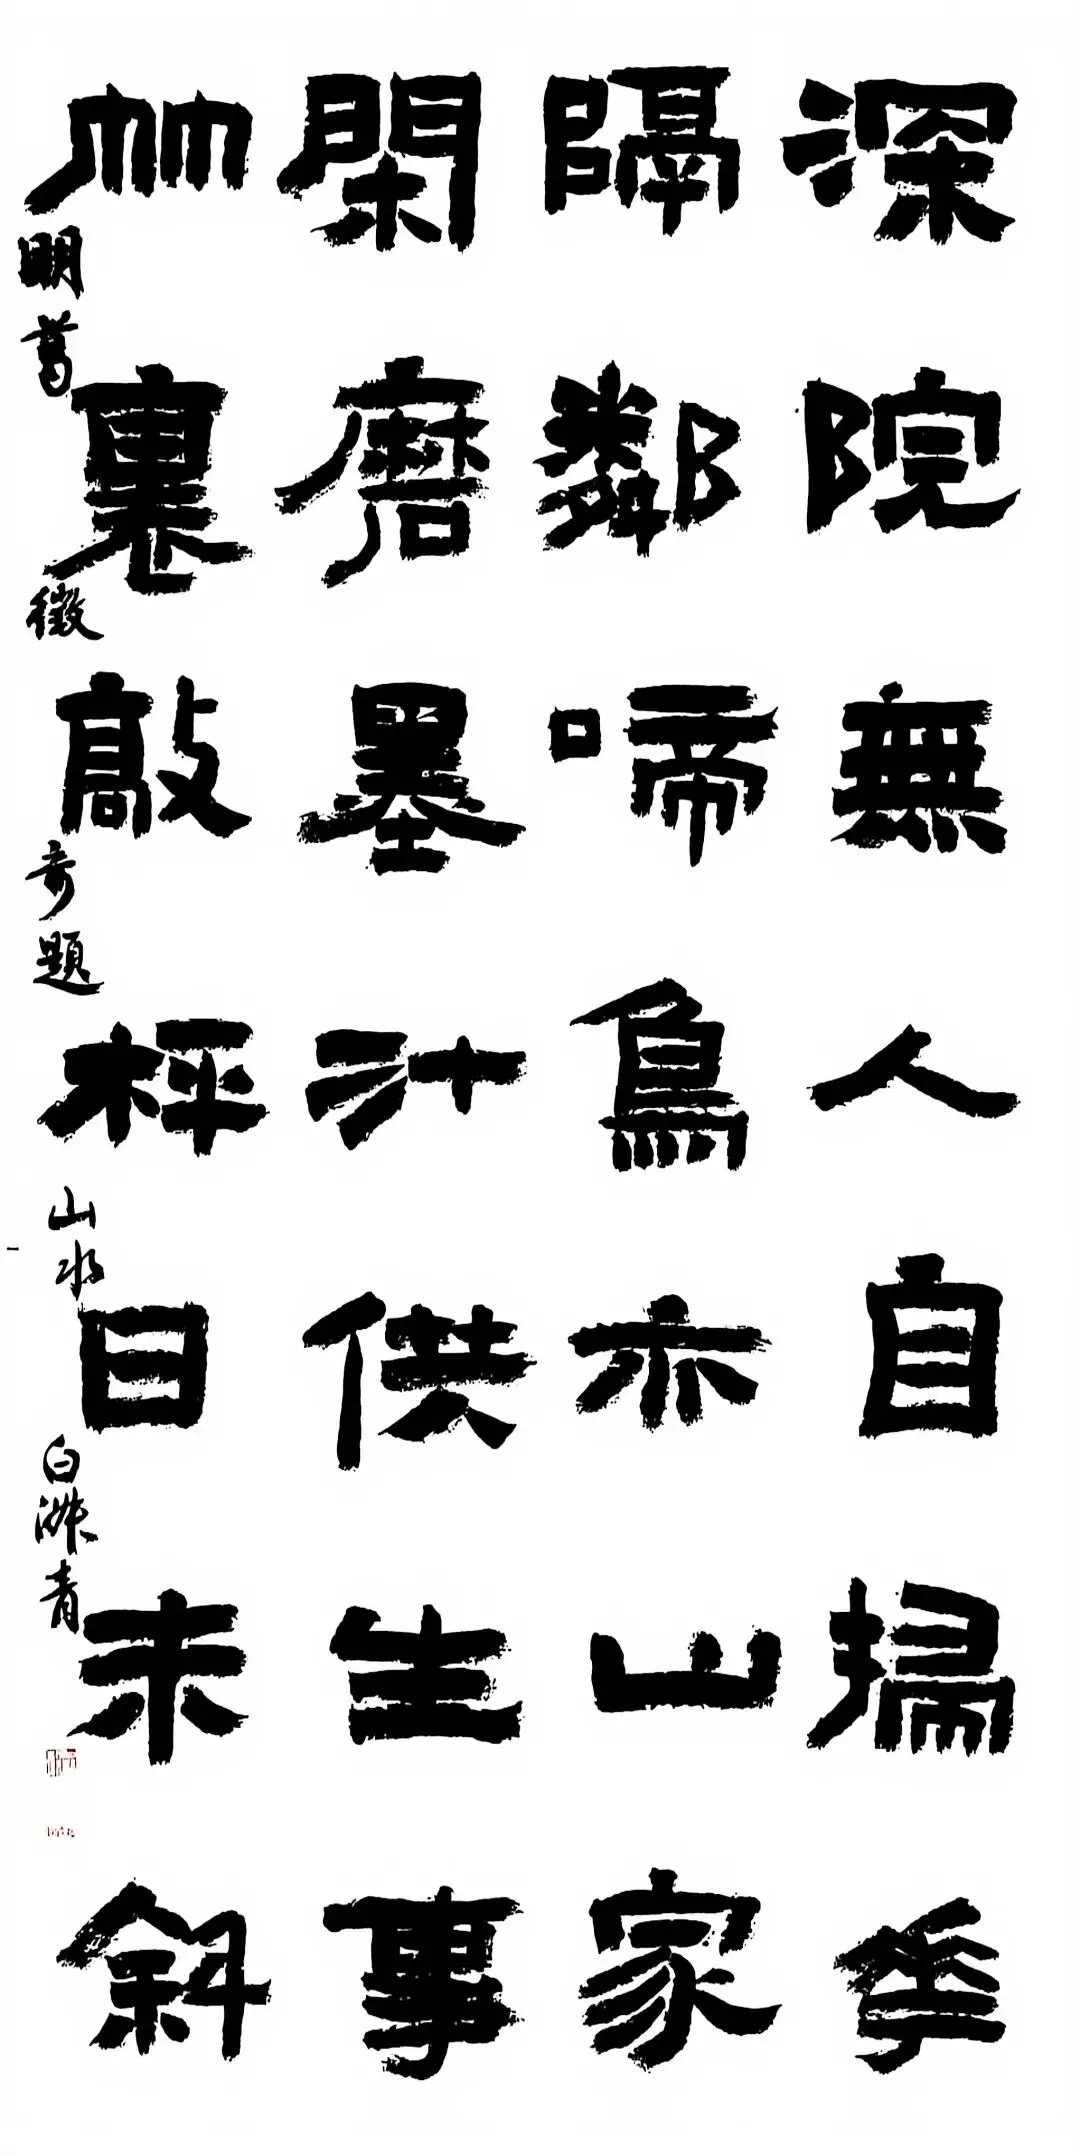 深院無人自掃華
隔鄰啼鳥亦山家
閑磨墨汁供生事
竹裏敲枰日未斜
明葛徵奇題山水白青